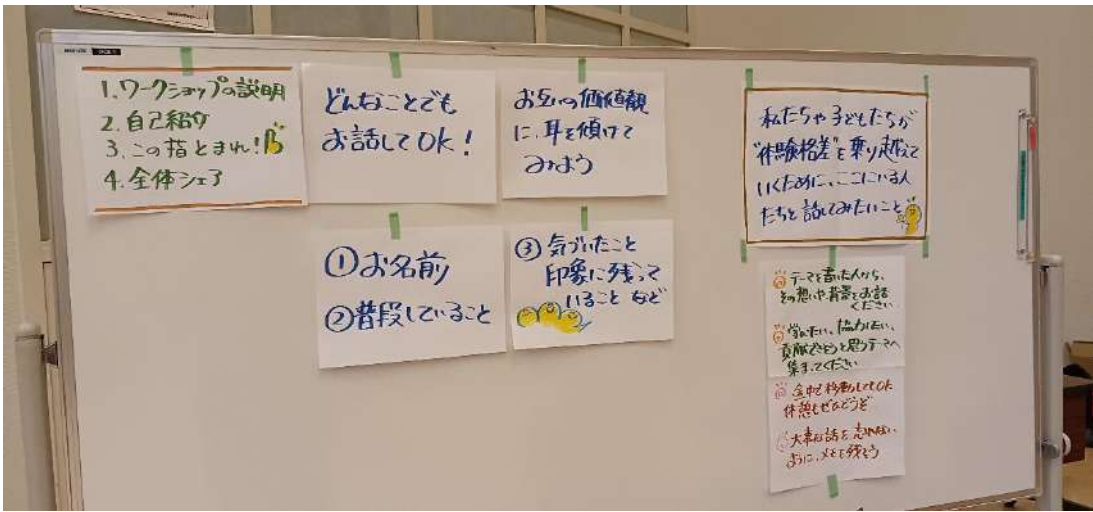 1.ワークショップの説明
2.自己紹介
3.この指とまれ!
4.全体シェア
どんなことでも
お話してOK!
お互いの価値観
に、耳を傾けて
みよう
①お名前
②普段していること
③気づいたこと
印象に残って
いること など
私たちや子どもたちが
"体験格差"を乗り越えて
いくために、ここにいる人
たちと話してみたいこと
テーマを書いた人から、
その想いや背景をお話
ください
学びたい、協力したい、
貢献できそうと思うテーマへ
集まってください
途中で移動してもOK
休憩もぜひどうぞ
大事な話を忘れない
ように、メモを残そう